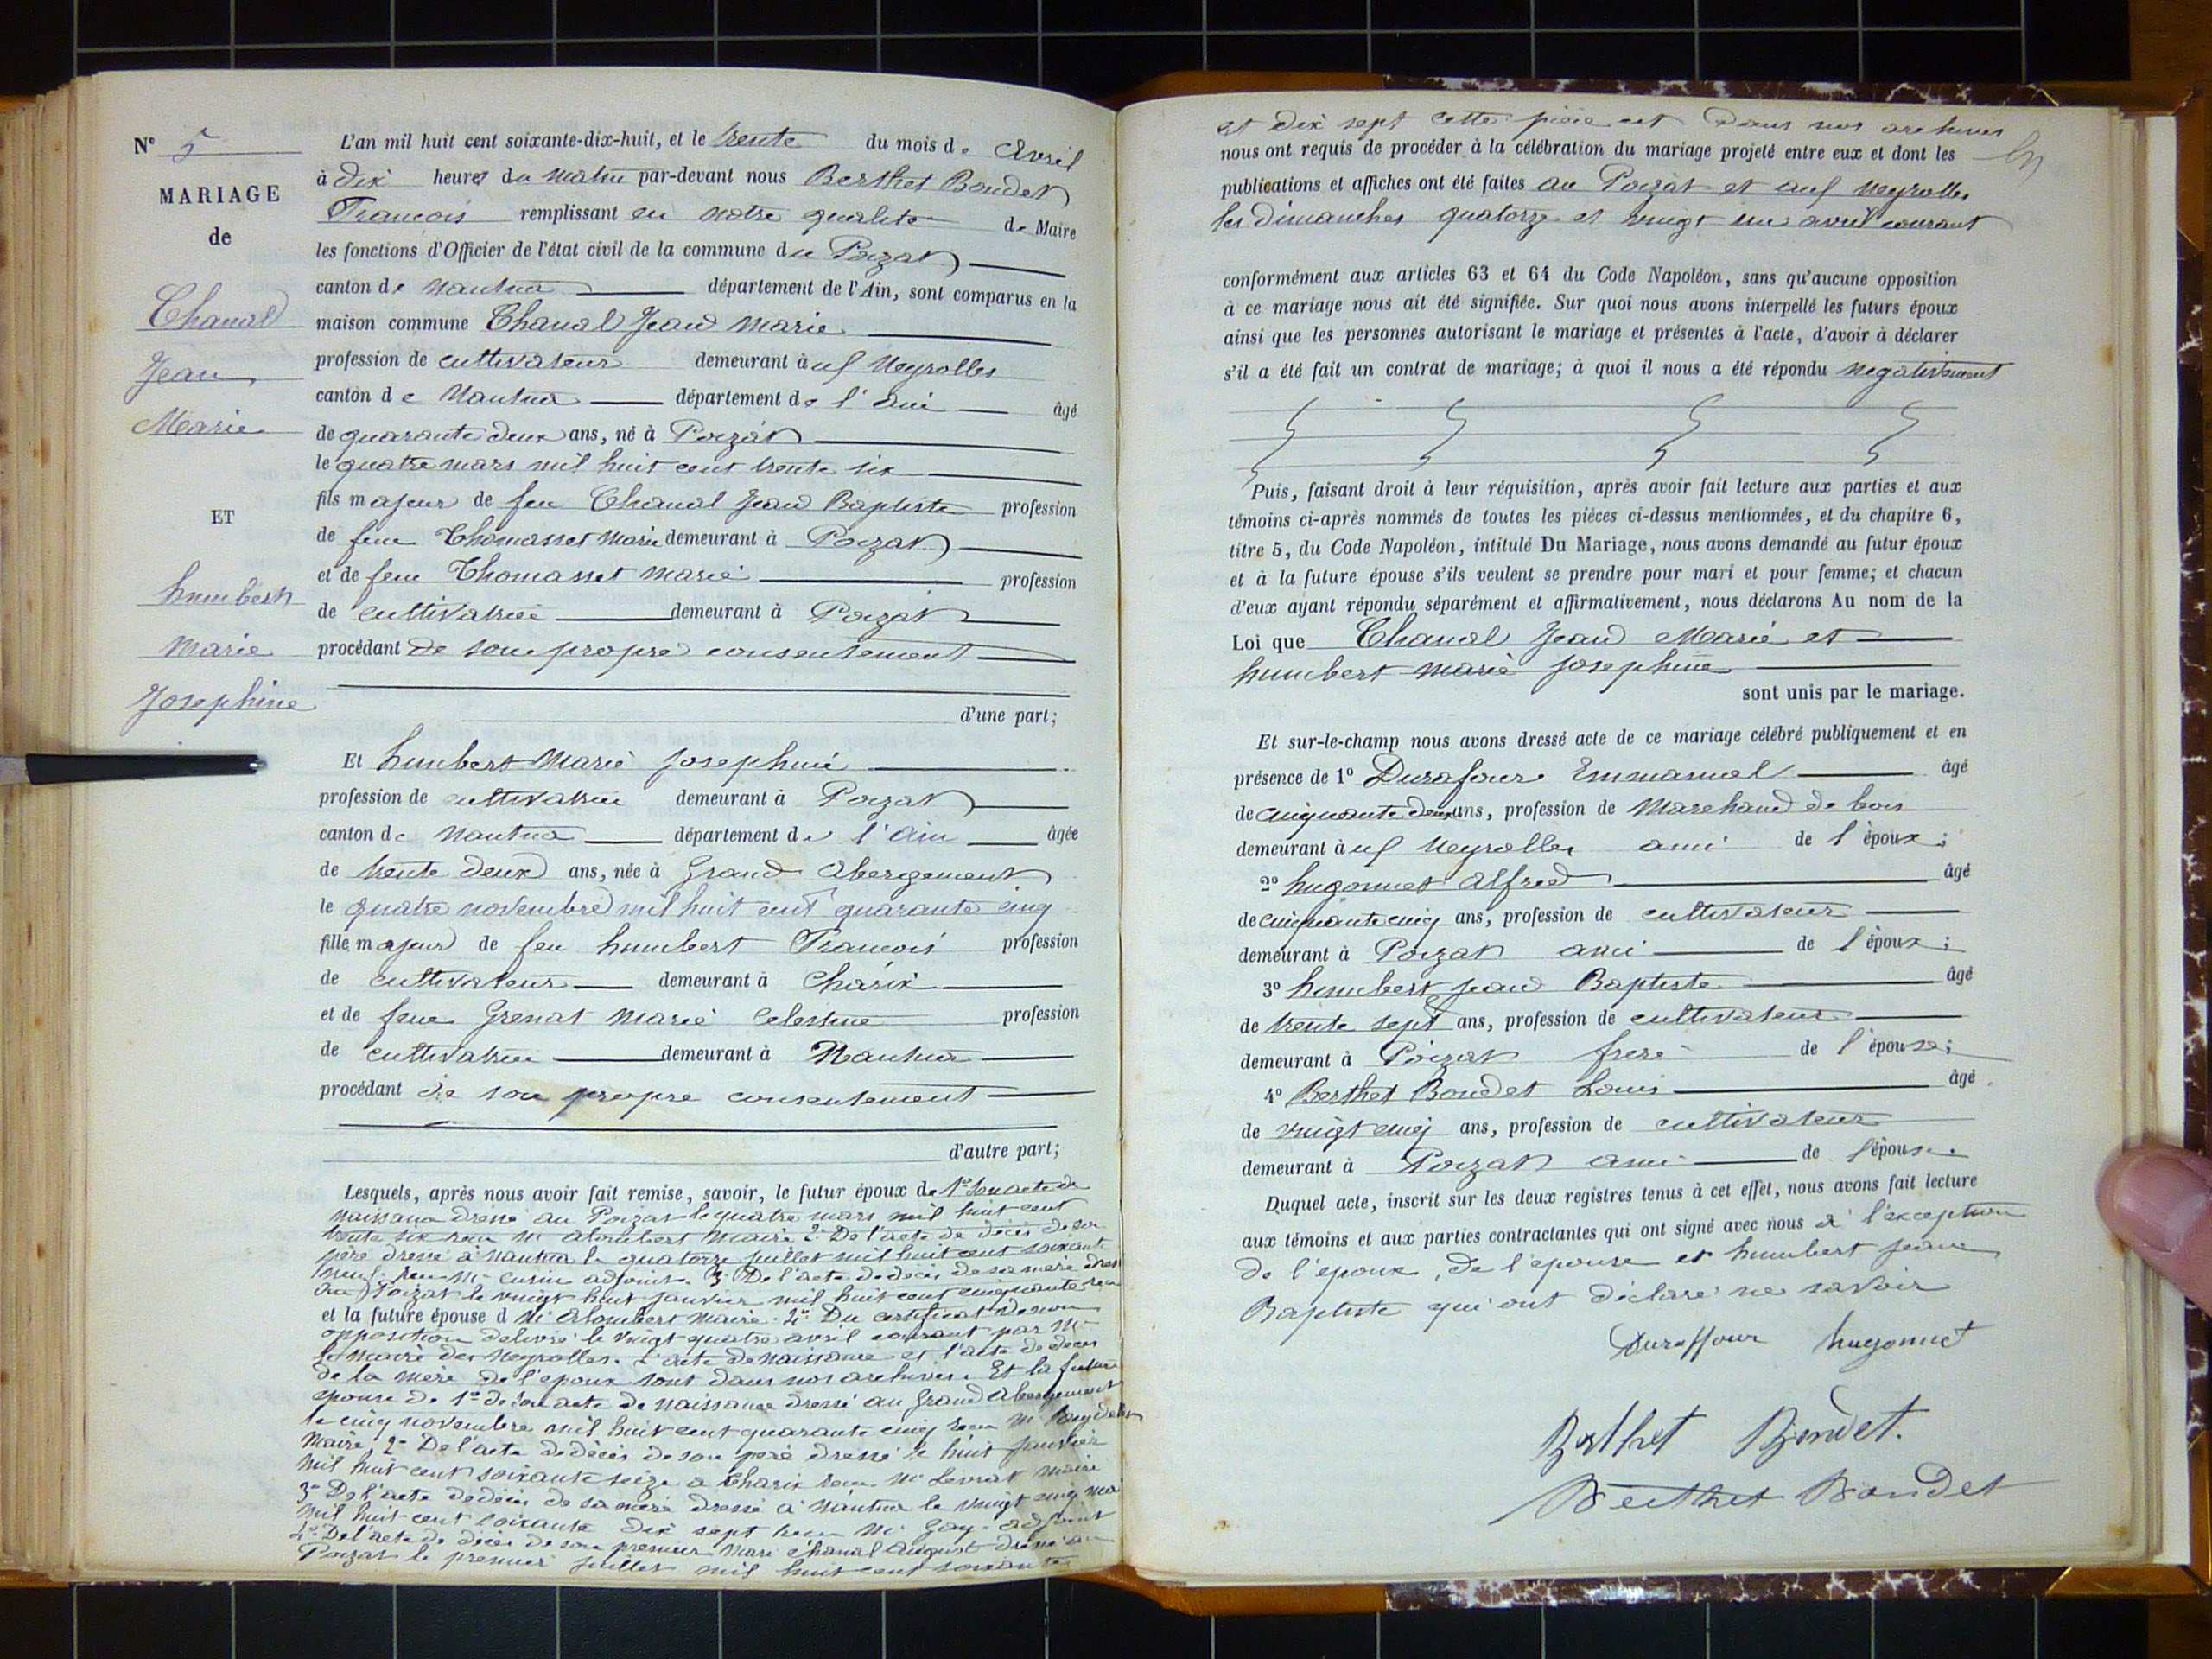 N° 5
MARIAGE
de
Chanal
Jean
Marie
ET
humbert
Marie
Josephine
L'an mil huit cent soixante-dix-huit, et le trente du mois de Avril
à dix heures du matin par-devant nous Berthet Bondet
Francois remplissant en notre qualité de Maire
les fonctions d'Officier de l'état civil de la commune du Poizat
canton de Nantua département de l'Ain, sont comparus en la
maison commune Chanal Jean Marie
profession de cultivateur demeurant à uf Neyrolles
canton de Nantua département de l'ain âgé
de quarante deux ans, né à Poizat
le quatre mars mil huit cent trente six
fils majeur de feu Chanal Jean Baptiste profession
de feue Thomasset Marie demeurant à Poizat
et de feue Thomasset Marie profession
de cultivatrice demeurant à Poizat
procédant de son propre consentement
d'une part;
Et humbert Marie Josephine
profession de cultivatrice demeurant à Poizat
canton de Nantua département de l'ain âgée
de trente deux ans, née à Grand Abergement
le quatre novembre mil huit cent quarante cinq
fille majeur de feu humbert Francois profession
de cultivateur demeurant à Charix
et de feue Grenat Marie Celestine profession
de cultivatrice demeurant à Nantua
procédant de son propre consentement
d'autre part;
Lesquels, après nous avoir fait remise, savoir, le futur époux de 1° Son acte de
naissance dressé au Poizat le quatre mars mil huit cent
trente six reçu Mr alombert Maire 2° De l'acte de décès de son
père dressé à Nantua le quatorze juillet mil huit cent soixante
neuf reçu Mr adjoint. 3° De l'acte de décès de sa mère dressé
au Poizat le vingt huit janvier mil huit cent cinquante reçu
et la future épouse d Mr Alombert Maire. 4° Du certificat de non
opposition delivré le vingt quatre avril courant par Mr
le Maire des Neyrolles. L'acte de naissance et l'acte de deces
de la mère de l'epoux sont dans nos archives. Et la future
epouse de 1° de son acte de naissance dressé au Grand Abergement
le cinq novembre mil huit cent quarante cinq reçu Mr
Maire, 2° De l'acte de décès de son père dressé le huit janvier
mil huit cent soixante seize a Charix reçu Mr Levrat Maire
3° De l'acte de décès de sa mere dressé à Nantua le vingt cinq mai
mil huit cent soixante dix sept reçu Mr Gay adjoint
4° De l'acte de décès de son premier Mari Chanal August dressé au
Poizat le premier juillet mil huit cent soixante
et dix sept cette pièce est Dans nos archives
nous ont requis de procéder à la célébration du mariage projeté entre eux et dont les
publications et affiches ont été faites au Poizat et auf Neyrolles
les dimanches quatorze et vingt un avril courant
conformément aux articles 63 et 64 du Code Napoléon, sans qu'aucune opposition
à ce mariage nous ait été signifiée. Sur quoi nous avons interpellé les futurs époux
ainsi que les personnes autorisant le mariage et présentes à l'acte, d'avoir à déclarer
s'il a été fait un contrat de mariage; à quoi il nous a été répondu negativement
Puis, faisant droit à leur réquisition, après avoir fait lecture aux parties et aux
témoins ci-après nommés de toutes les pièces ci-dessus mentionnées, et du chapitre 6,
titre 5, du Code Napoléon, intitulé Du Mariage, nous avons demandé au futur époux
et à la future épouse s'ils veulent se prendre pour mari et pour femme; et chacun
d'eux ayant répondu séparément et affirmativement, nous déclarons Au nom de la
Loi que Chanal Jean Marie et
humbert marie josephine
sont unis par le mariage.
Et sur-le-champ nous avons dressé acte de ce mariage célébré publiquement et en
présence de 1° Durafour Emmanuel âgé
de cinquante deux ans, profession de Marchand de bois
demeurant à uf Neyrolles ami de l'époux;
2° hugonnet Alfred âgé
de cinquante cinq ans, profession de cultivateur
demeurant à Poizat ami de l'époux;
3° humbert jean Baptiste âgé
de trente sept ans, profession de cultivateur
demeurant à Poizat frere de l'épouse;
4° Berthet Bondet Louis âgé
de vingt cinq ans, profession de cultivateur
demeurant à Poizat ami de l'épouse.
Duquel acte, inscrit sur les deux registres tenus à cet effet, nous avons fait lecture
aux témoins et aux parties contractantes qui ont signé avec nous à l'exception
de l'epoux, de l'epouse et humbert jean
Baptiste qui ont déclaré ne savoir
Duraffour hugonnet
Berthet Bondet.
Berthet Bondet